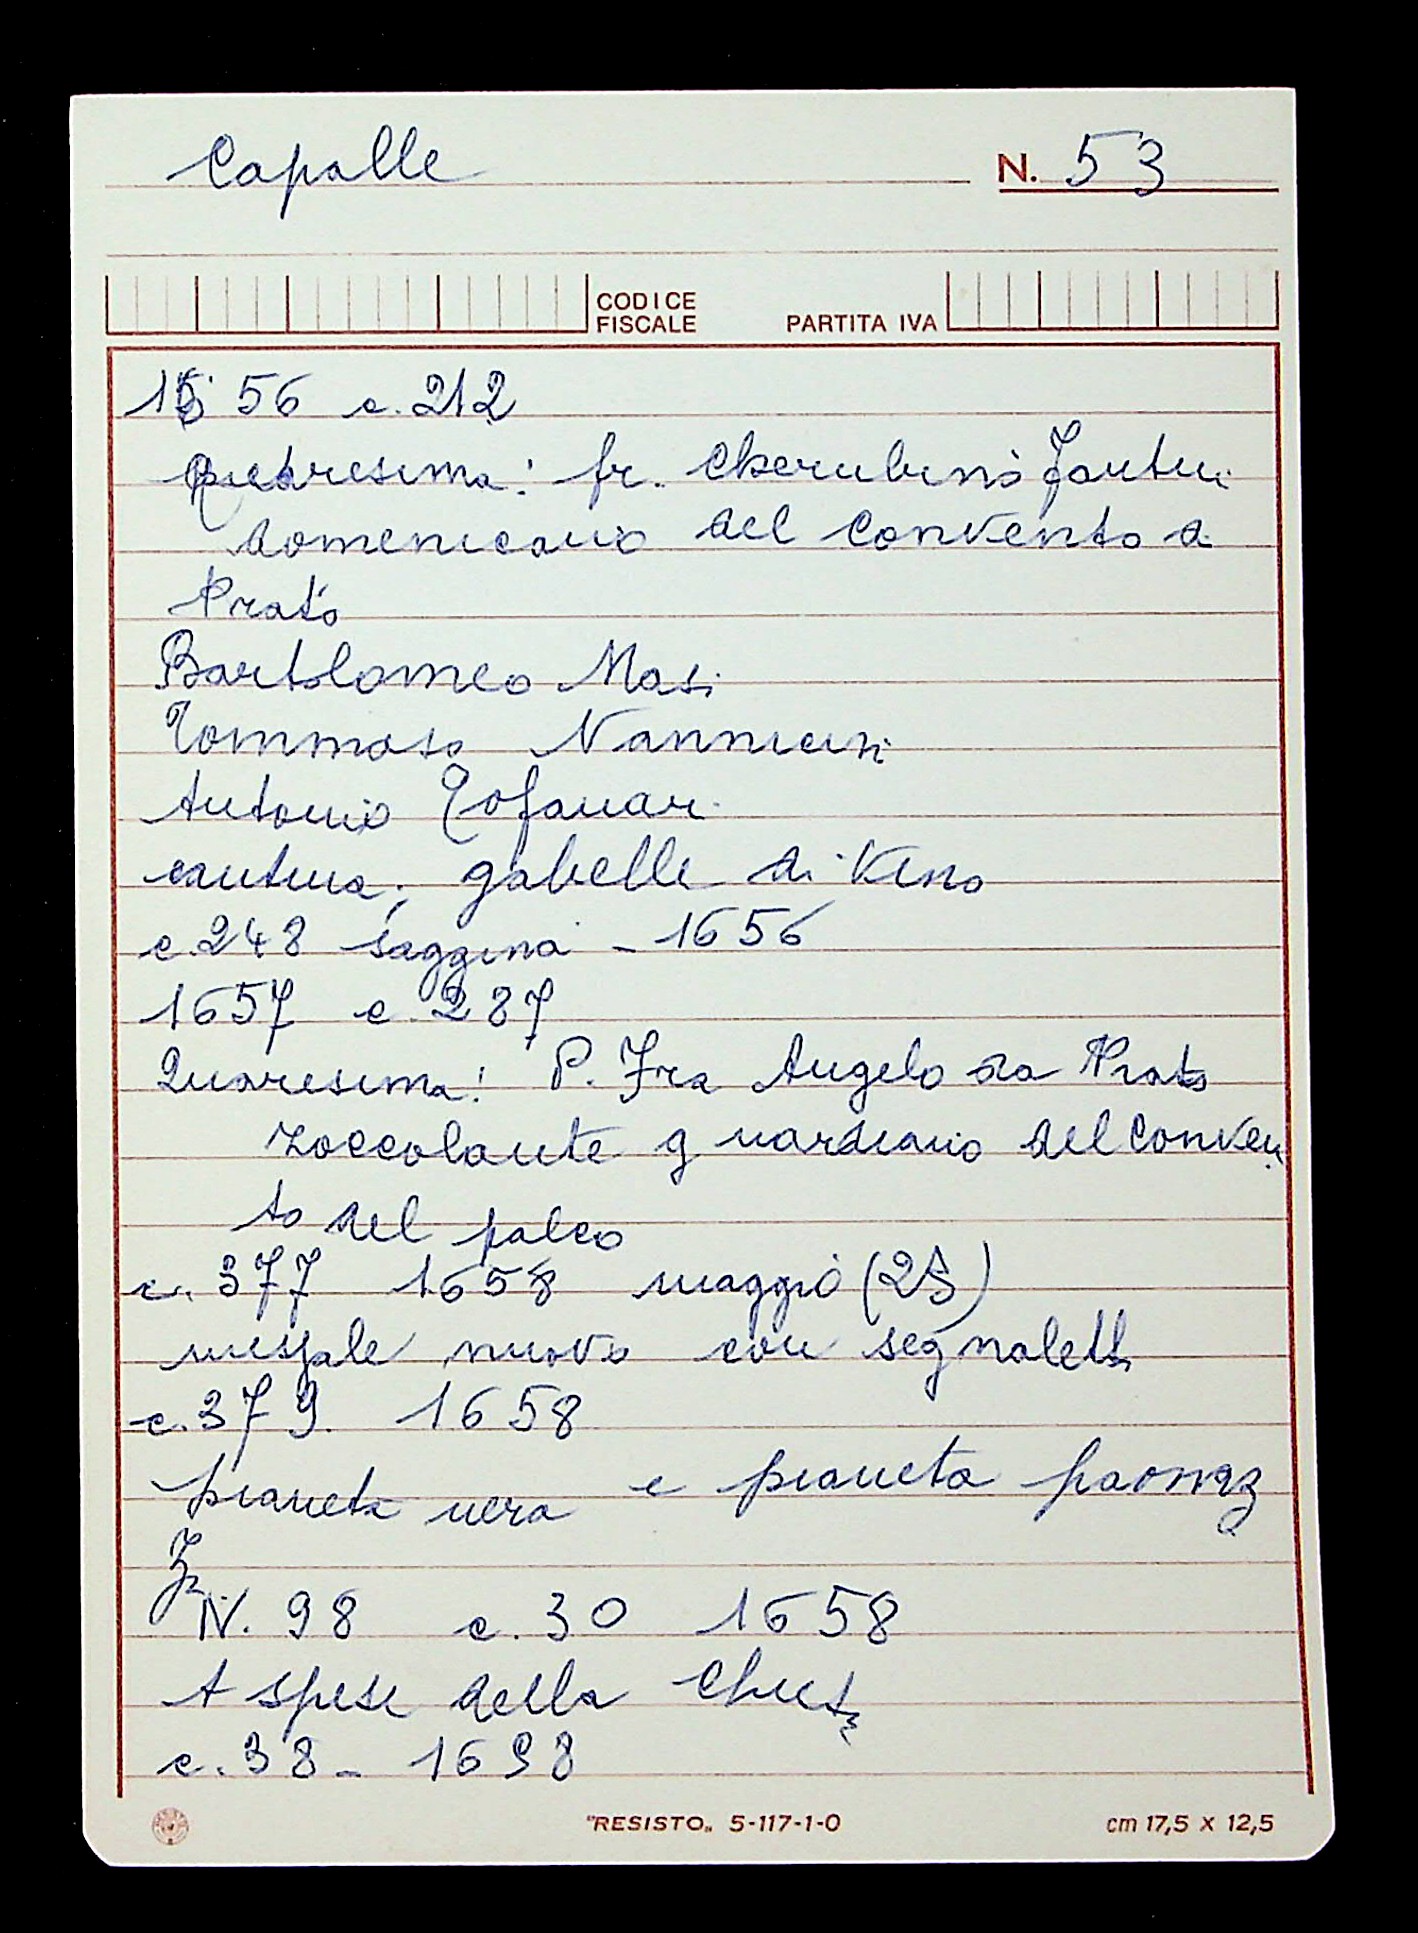 Capalle N. 53
CODICE
FISCALE PARTITA IVA
1656 c. 212
Quaresima: fr. Cherubino
domenicano del convento di
Prato
Bartolomeo Masi
Tommaso Nannucci
Antonio Tofanari
cantina; gabelle di vino
c. 248 saggina - 1656
1657 c. 287
Quaresima: P. Fra Angelo da Prato
zoccolante guardiano del conven
to del palco
c. 377 1658 maggio (25)
messale nuovo con segnaletti
c. 379. 1658
pianeta nera e pianeta paonaz
za
N. 98 c. 30 1658
A spese della
c. 38 - 1698
"RESISTO" 5-117-1-0 cm 17,5 x 12,5